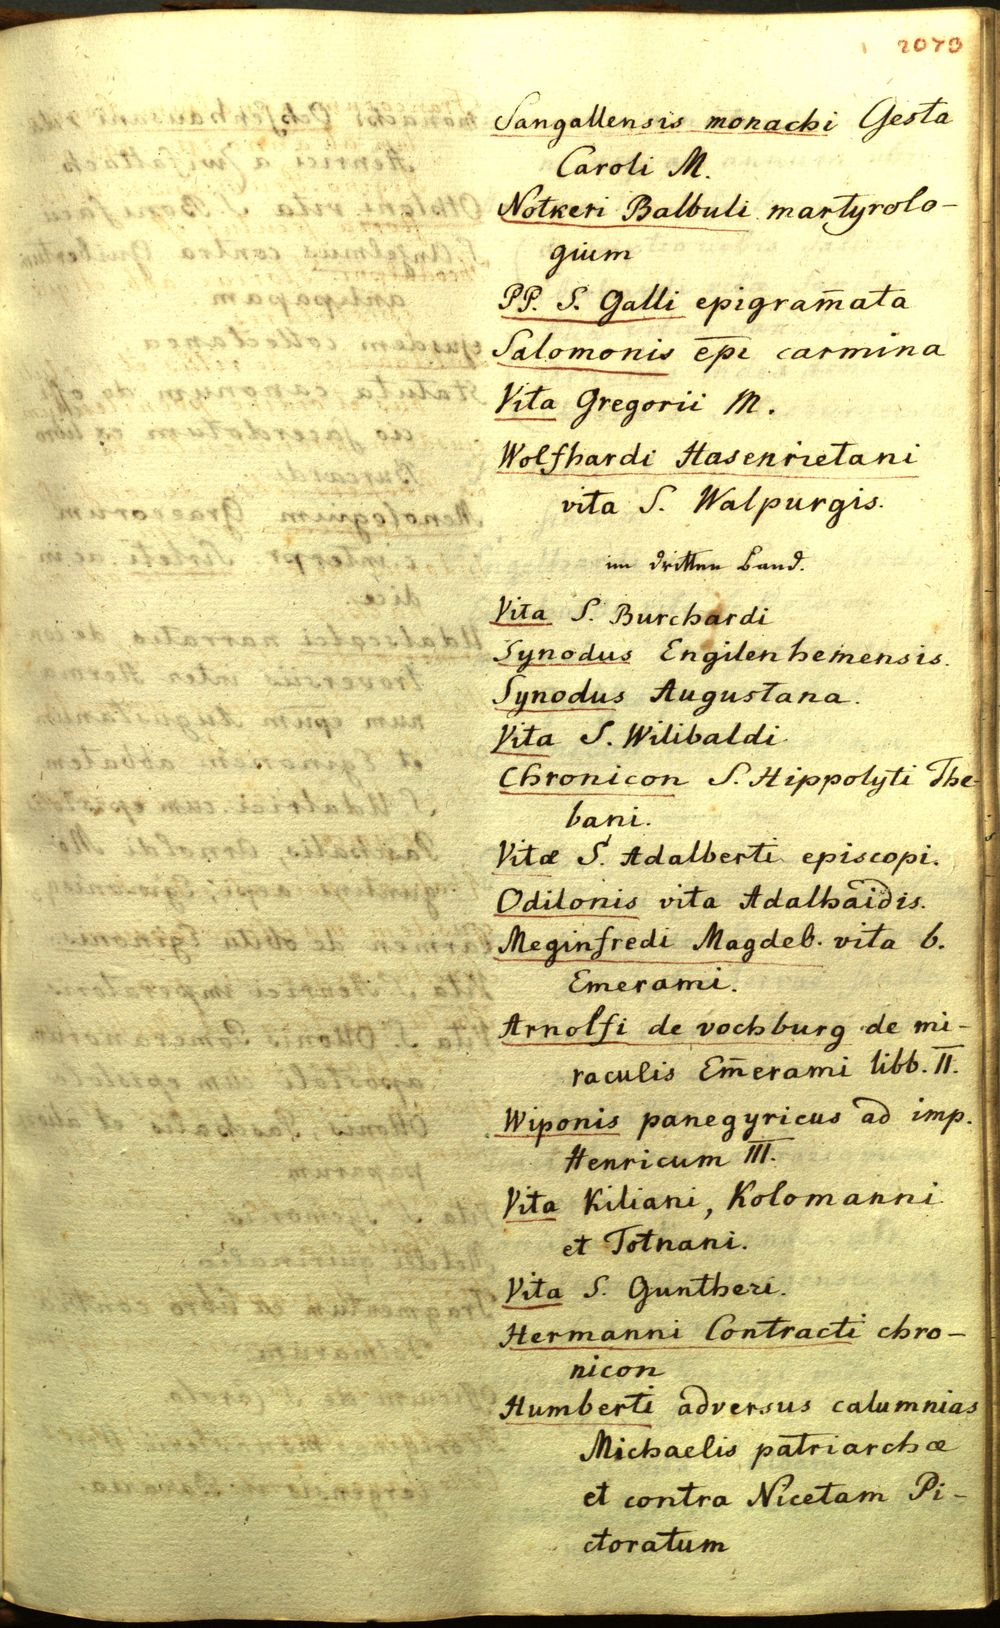 2079
Sangallensis monachi Gesta
Caroli M.
Notkeri Balbuli martyrolo-
gium
PP. S. Galli epigram̄ata
Salomonis ep̄i carmina
Vita Gregorii M.
Wolfhardi Hasenrietani
vita S. Walpurgis.
im dritten Band.
Vita S. Burchardi
Synodus Engilenhemensis.
Synodus Augustana.
Vita S. Wilibaldi
Chronicon S. Hippolyti The-
bani.
Vitæ S. Adalberti episcopi.
Odilonis vita Adalhaidis.
Meginfredi Magdeb. vita b.
Emerami.
Arnolfi de vochburg de mi-
raculis Em̄erami libb. II.
Wiponis panegyricus ad imp.
Henricum III.
Vita Kiliani, Kolomanni
et Totnani.
Vita S. Guntheri.
Hermanni Contracti chro-
nicon
Humberti adversus calumnias
Michaelis patriarchæ
et contra Nicetam Pi-
ctoratum